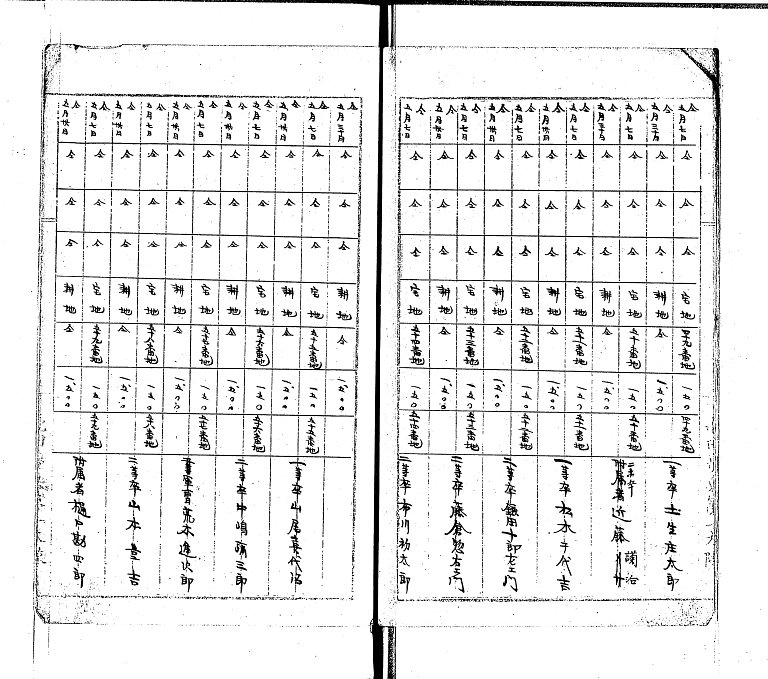 仝 五月七日 仝 仝 仝 宅地 四十九番地 一五〇 四十九番地 一等卒 土生庄太郎
仝 五月三十日 仝 仝 仝 耕地 仝 一、五〇〇
仝 五月七日 仝 仝 仝 宅地 五十番地 一五〇 五十番地 附属者 近藤
仝 五月三十日 仝 仝 仝 耕地 仝 一、五〇〇
仝 五月七日 仝 仝 仝 宅地 五十一番地 一五〇 五十一番地 一等卒 松本千代吉
仝 五月卅日 仝 仝 仝 耕地 仝 一、五〇〇
仝 五月七日 仝 仝 仝 宅地 五十二番地 一五〇 五十二番地 二等卒 鎌田十郎左エ門
仝 五月卅日 仝 仝 仝 耕地 仝 一、五〇〇
仝 五月七日 仝 仝 仝 宅地 五十三番地 一五〇 五十三番地 二等卒 藤倉惣右エ門
仝 五月卅日 仝 仝 仝 耕地 仝 一、五〇〇
仝 五月七日 仝 仝 仝 宅地 五十四番地 一五〇 五十四番地 二等卒 布川初太郎
仝 五月三十日 仝 仝 仝 耕地 仝 一、五〇〇
仝 五月七日 仝 仝 仝 宅地 五十五番地 一五〇 五十五番地 一等卒 山尾喜代治
仝 五月卅日 仝 仝 仝 耕地 仝 一、五〇〇
仝 五月七日 仝 仝 仝 宅地 五十六番地 一五〇 五十六番地 二等卒 中嶋 三郎
仝 五月卅日 仝 仝 仝 耕地 仝 一、五〇〇
仝 五月七日 仝 仝 仝 宅地 五十七番地 一五〇 五十七番地 軍曹 荒木進次郎
仝 五月卅日 仝 仝 仝 耕地 仝 一、五〇〇
仝 五月七日 仝 仝 仝 宅地 五十八番地 一五〇 五十八番地 二等卒 山本 吉
仝 五月卅日 仝 仝 仝 耕地 仝 一、五〇〇
仝 五月七日 仝 仝 仝 宅地 五十九番地 一五〇 五十九番地 附属者 樋戸勘四郎
仝 五月卅日 仝 仝 仝 耕地 仝 一、五〇〇